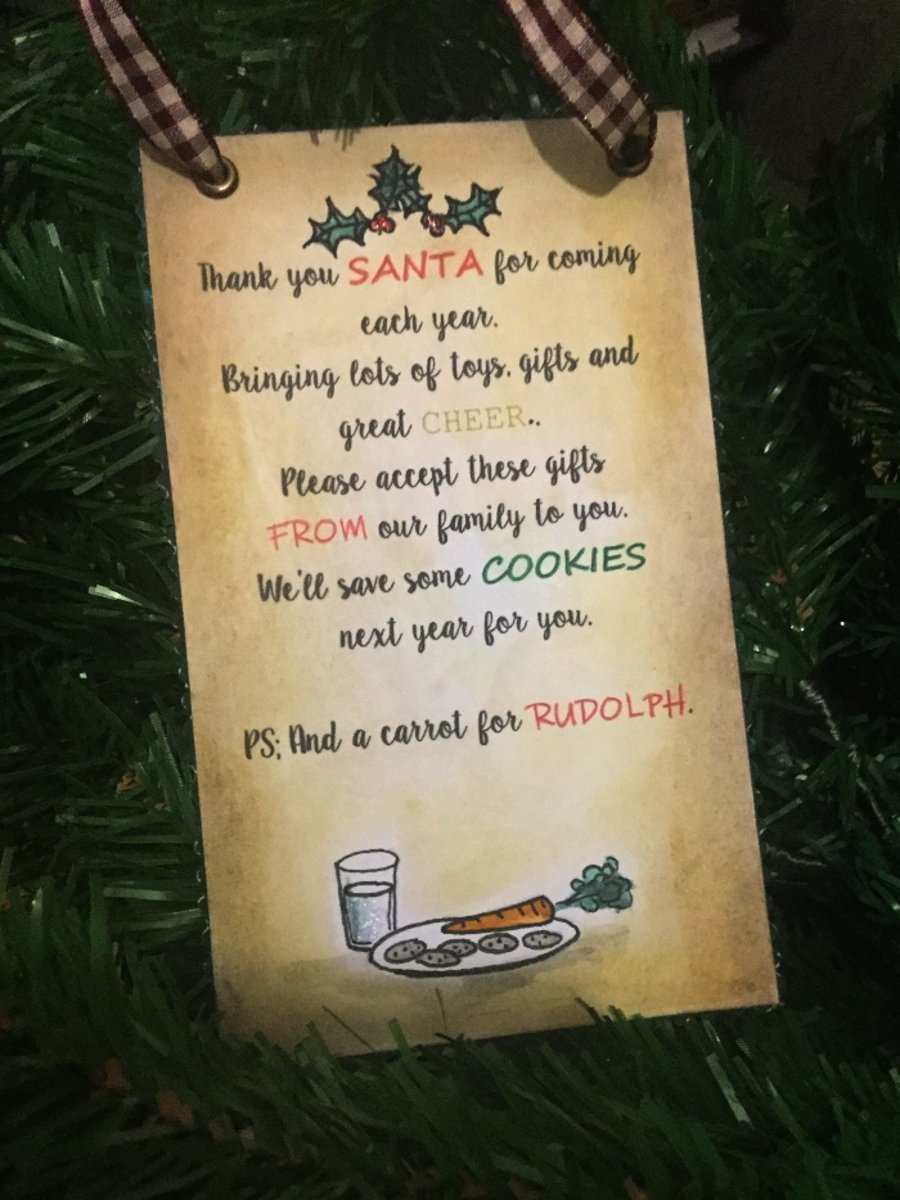 Thank you SANTA for coming
each year.
Bringing lots of toys, gifts and
great CHEER..
Please accept these gifts
FROM our family to you.
We'll save some COOKIES
next year for you.
PS; And a carrot for RUDOLPH.